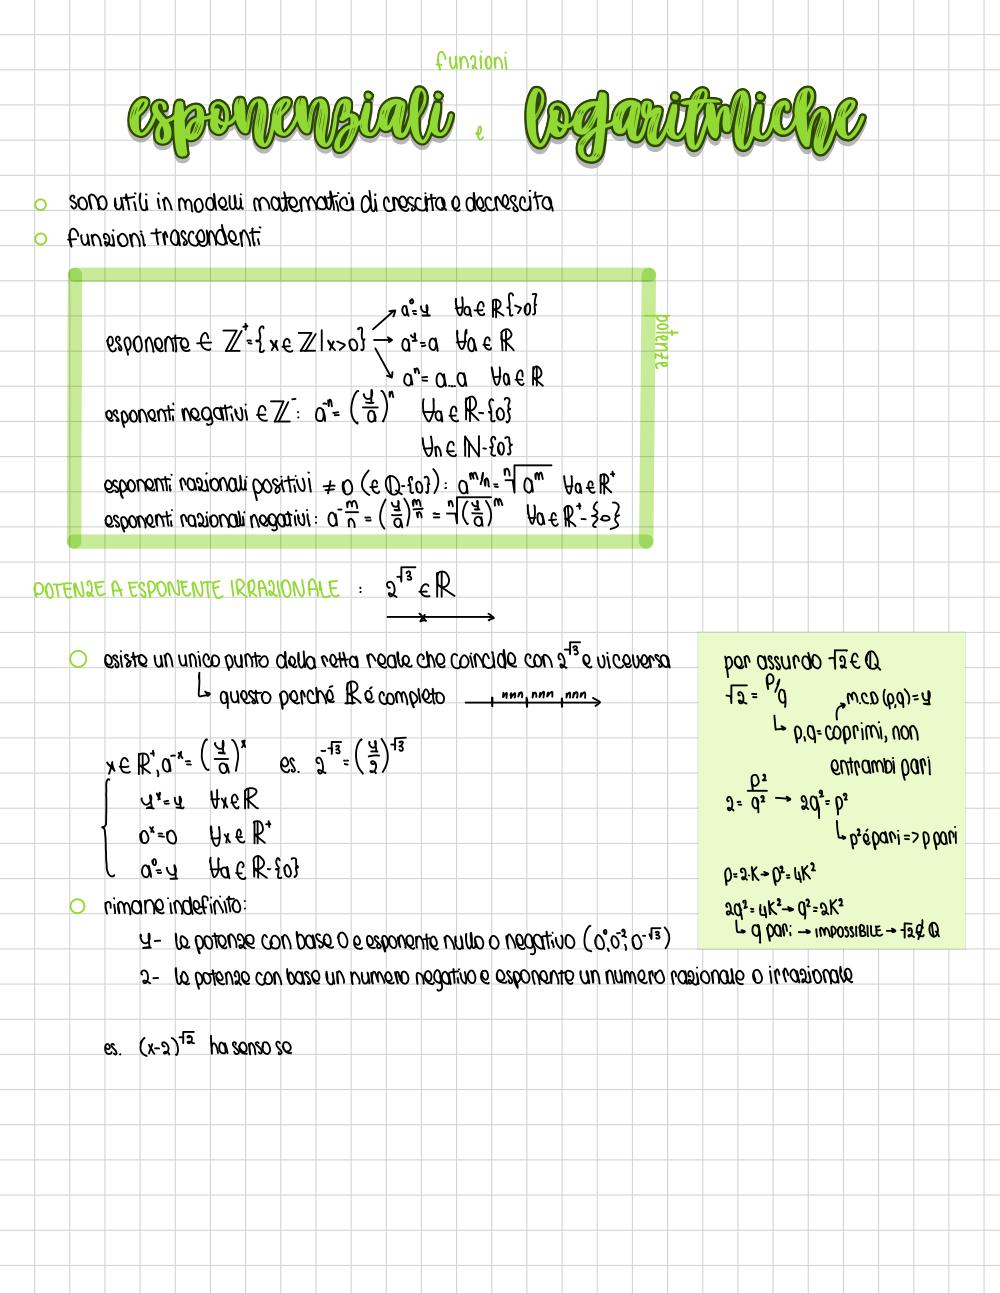 funzioni
esponenziali e logaritmiche
sono utili in modelli matematici di crescita e decrescita
funzioni trascendenti
potenze
a⁰=1 ∀a∈ℝ{>0}
esponente ∈ ℤ⁺={x∈ℤ|x>0} → a¹=a ∀a∈ℝ
aⁿ= a...a ∀a∈ℝ
esponenti negativi ∈ℤ⁻: a⁻ⁿ= (1/a)ⁿ ∀a∈ℝ-{0}
∀n∈ℕ-{0}
esponenti razionali positivi ≠0 (∈ℚ-{0}): a^(m/n)= ⁿ√(a^m) ∀a∈ℝ⁺
esponenti razionali negativi: a^(-m/n) = (1/a)^(m/n) = ⁿ√((1/a)^m) ∀a∈ℝ⁺-{0}
POTENZE A ESPONENTE IRRAZIONALE : 2^√3 ∈ ℝ
esiste un unico punto della retta reale che coincide con 2^√3 e viceversa
↳ questo perché ℝ é completo
nnn nnn nnn
x∈ℝ⁺, a⁻ˣ= (1/a)ˣ es. 2^(-√3)=(1/2)^√3
1ˣ=1 ∀x∈ℝ
0ˣ=0 ∀x∈ℝ⁺
a⁰=1 ∀a∈ℝ-{0}
rimane indefinito:
1- le potenze con base 0 e esponente nullo o negativo (0⁰, 0⁻², 0^(-√3))
2- le potenze con base un numero negativo e esponente un numero razionale o irrazionale
es. (x-2)^√2 ha senso se
per assurdo √2∈ℚ
√2 = p/q → m.c.D (p,q)=1
↳ p,q=coprimi, non
entrambi pari
2= p²/q² → 2q²= p²
↳ p² é pari => p pari
p=2·K→p²=4K²
2q²=4K²→q²=2K²
↳ q pari → IMPOSSIBILE → √2∉ℚ